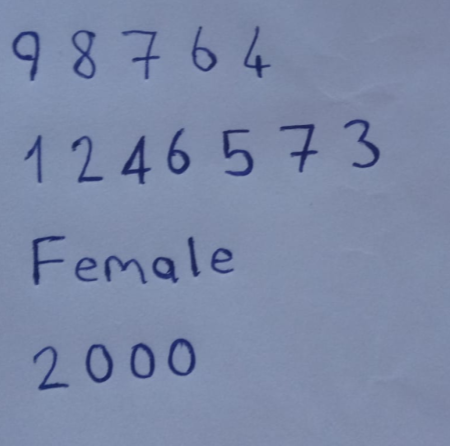 9 8 7 6 4
1 2 4 6 5 7 3
Female
2000